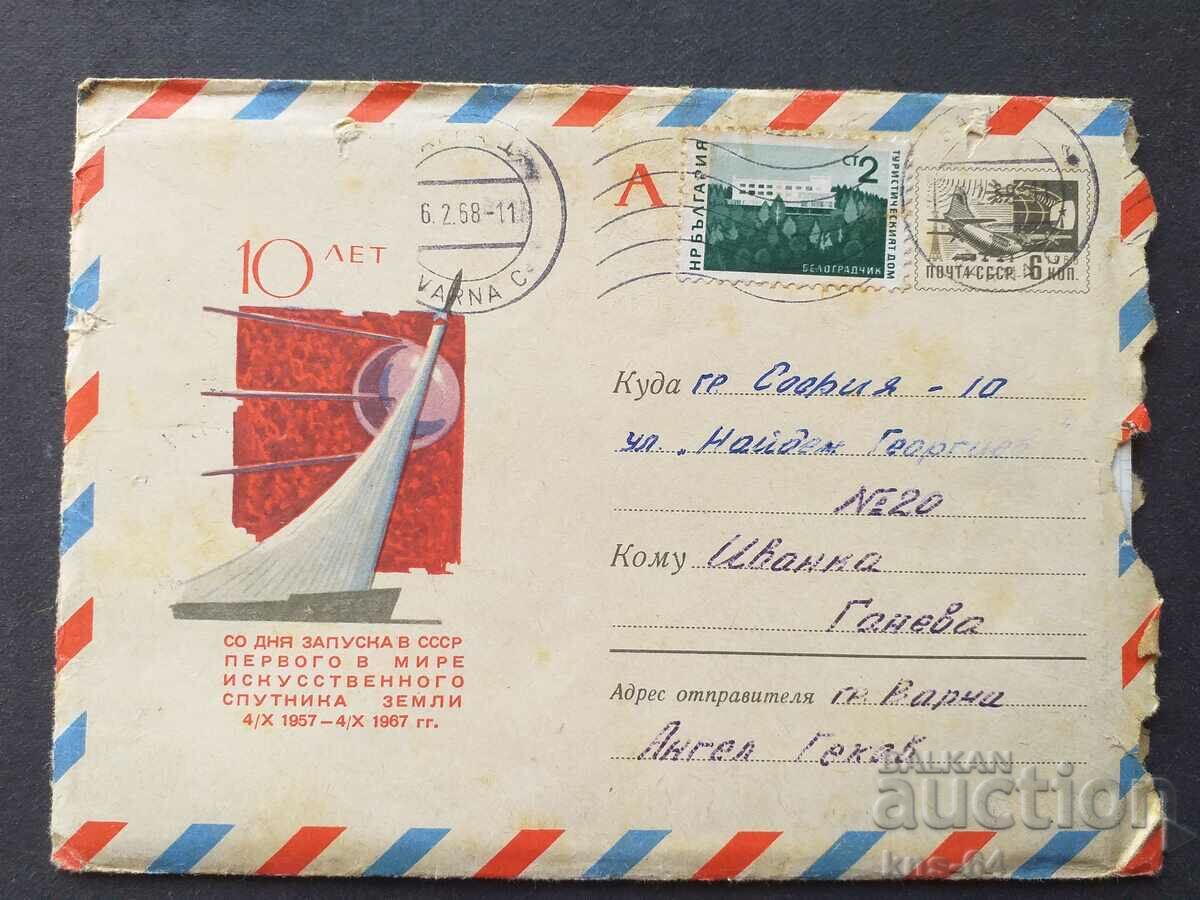 А
10 ЛЕТ
6.2.68-11
VARNA C
НР БЪЛГАРИЯ
СТ 2
ТУРИСТИЧЕСКИЯТ ДОМ
БЕЛОГРАДЧИК
ПОЧТА СССР 6 КОП.
Куда гр. София - 10
ул. „Найден Георгиев"
№20
Кому Иванка
Ганева
Адрес отправителя гр. Варна
Ангел Геков
СО ДНЯ ЗАПУСКА В СССР
ПЕРВОГО В МИРЕ
ИСКУССТВЕННОГО
СПУТНИКА ЗЕМЛИ
4/X 1957—4/X 1967 гг.
BALKAN
auction
kns-64